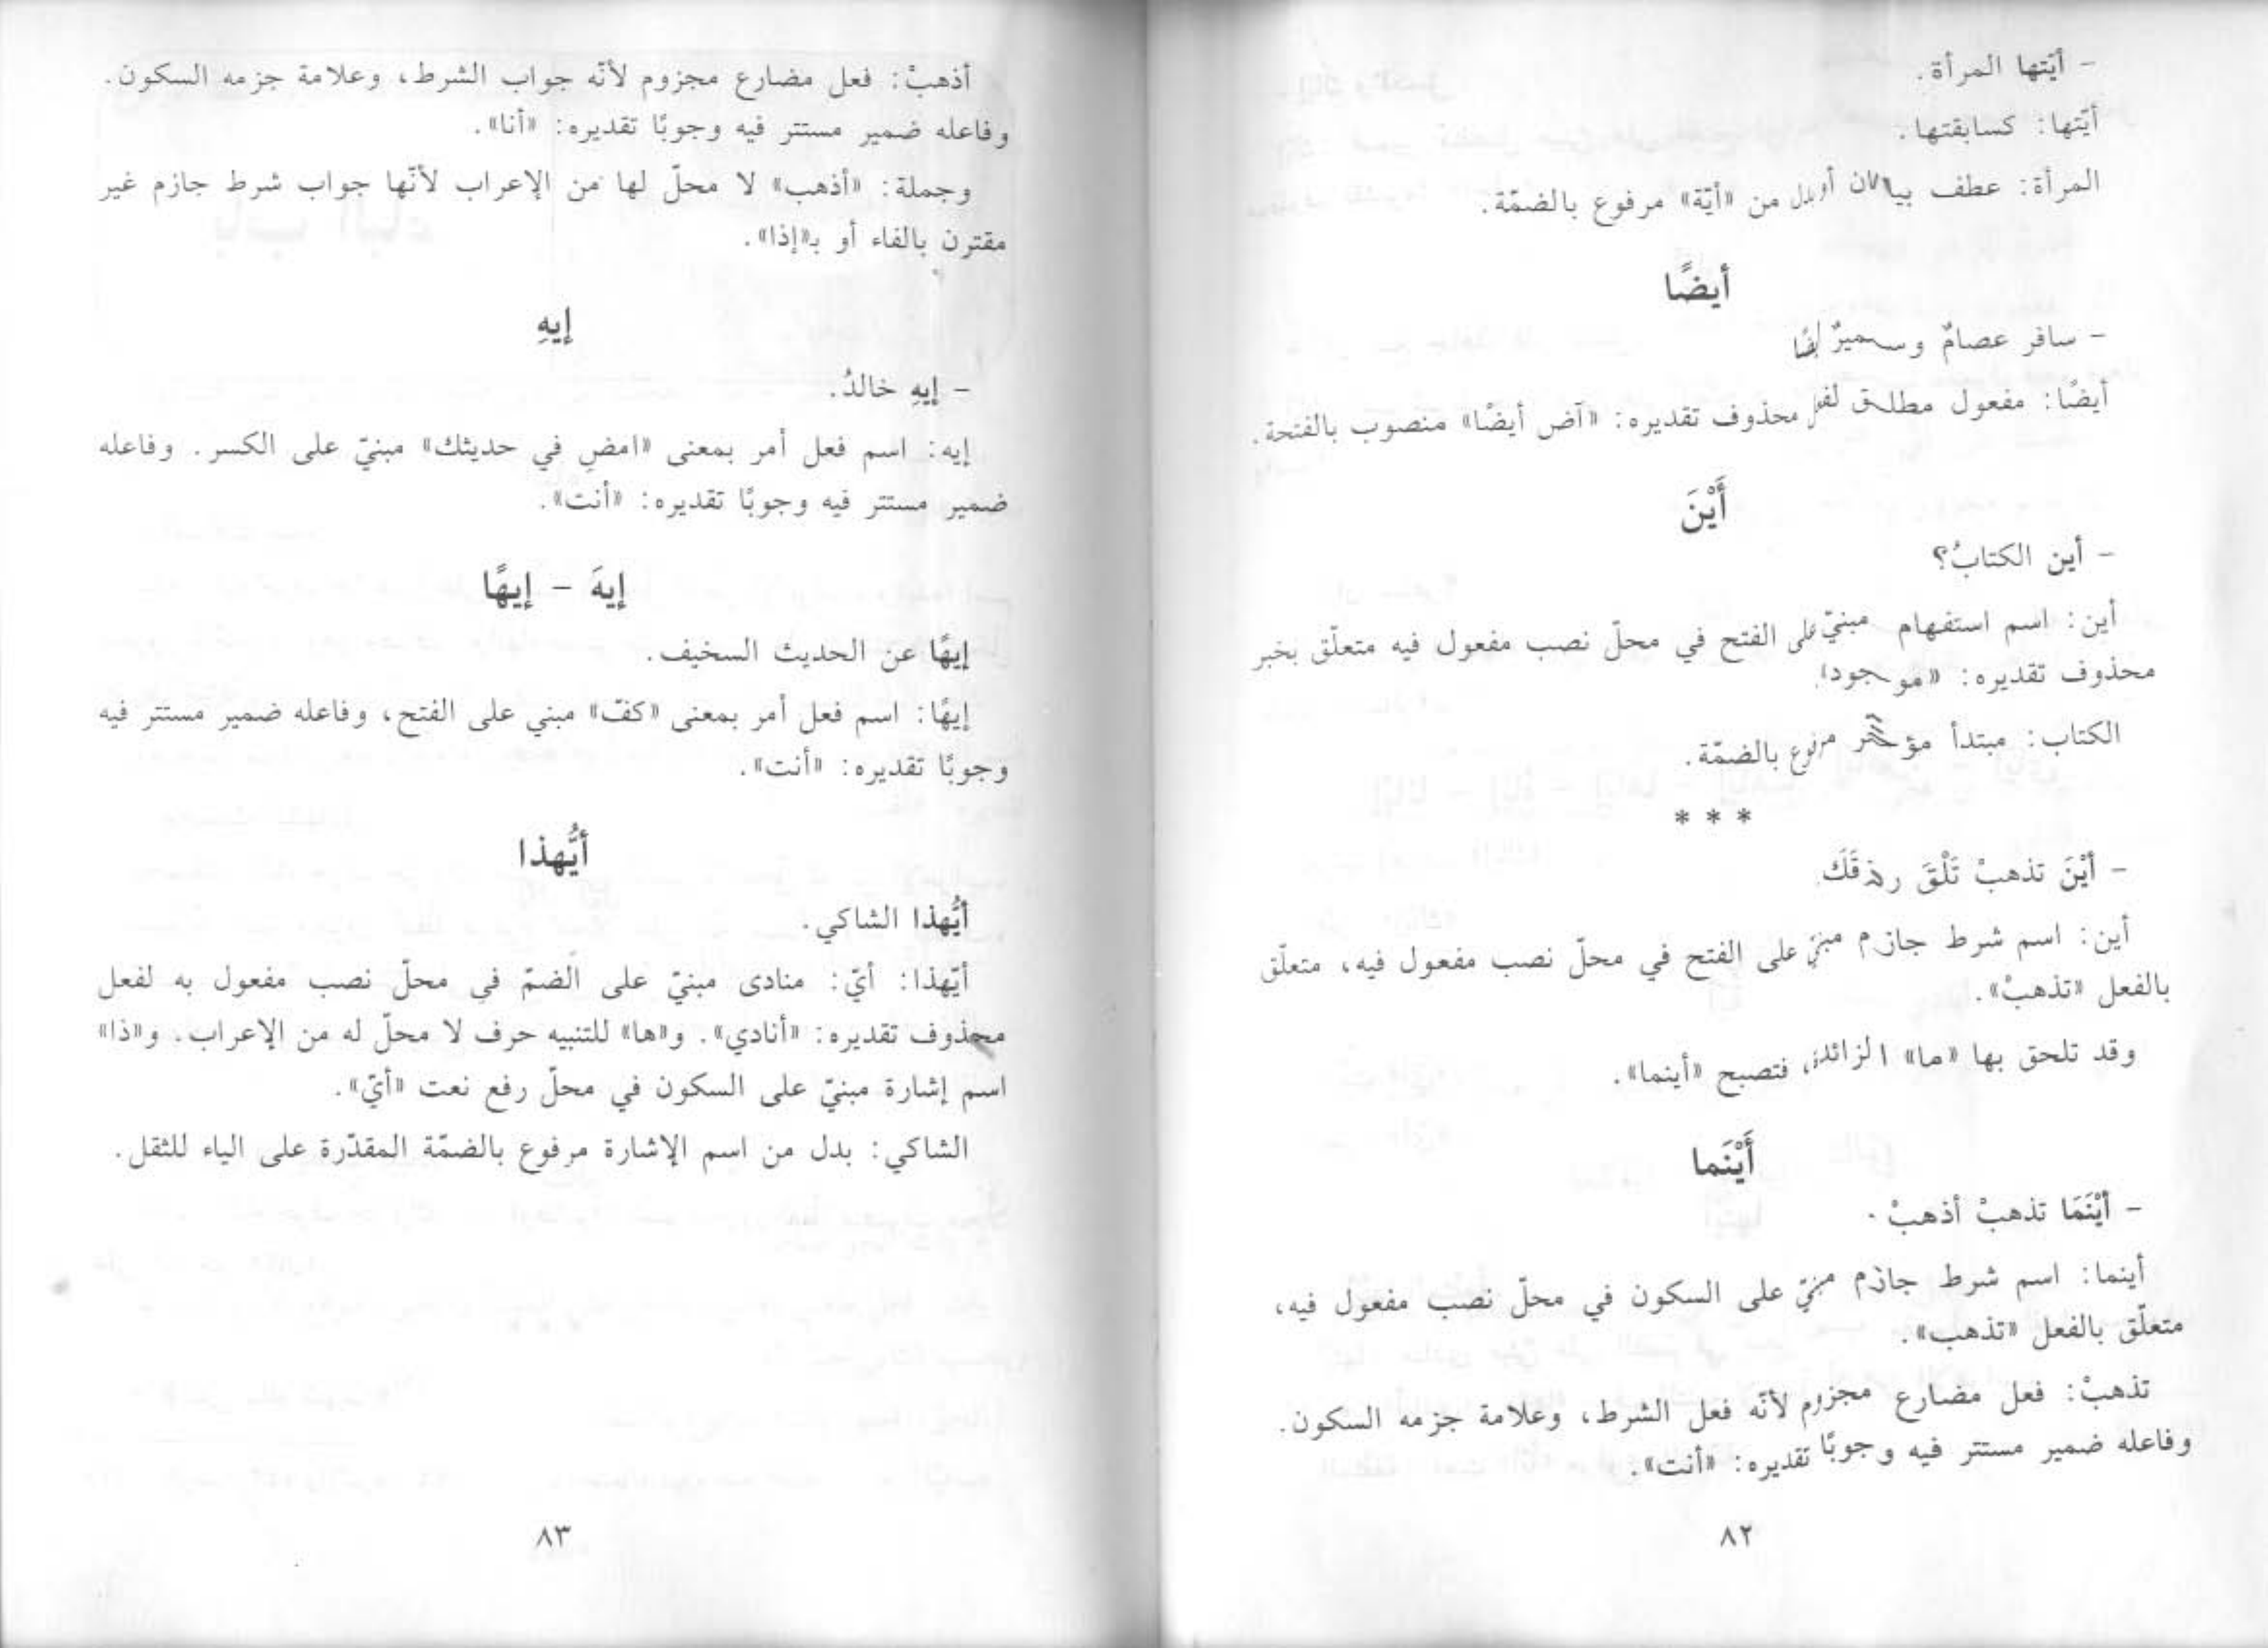 - أيّتها المرأة.
أيّتها: كسابقتها.
المرأة: عطف بيان أو بدل من «أيّة» مرفوع بالضمّة.
أيضًا
- سافر عصامٌ وسميرٌ أيضًا
أيضًا: مفعول مطلق لفعل محذوف تقديره: «آض أيضًا» منصوب بالفتحة.
أَيْنَ
- أين الكتابُ؟
أين: اسم استفهام مبنيّ على الفتح في محلّ نصب مفعول فيه متعلّق بخبر
محذوف تقديره: «موجود».
الكتاب: مبتدأ مؤخّر مرفوع بالضمّة.
* * *
- أيْنَ تذهبْ تَلْقَ رزقَكَ.
أين: اسم شرط جازم مبنيّ على الفتح في محلّ نصب مفعول فيه، متعلّق
بالفعل «تذهبْ».
وقد تلحق بها «ما» الزائدة، فتصبح «أينما».
أَيْنَما
- أيْنَمَا تذهبْ أذهبْ.
أينما: اسم شرط جازم مبنيّ على السكون في محلّ نصب مفعول فيه،
متعلّق بالفعل «تذهب».
تذهبْ: فعل مضارع مجزوم لأنّه فعل الشرط، وعلامة جزمه السكون.
وفاعله ضمير مستتر فيه وجوبًا تقديره: «أنت».
٨٢
أذهبْ: فعل مضارع مجزوم لأنّه جواب الشرط، وعلامة جزمه السكون.
وفاعله ضمير مستتر فيه وجوبًا تقديره: «أنا».
وجملة: «أذهب» لا محلّ لها من الإعراب لأنّها جواب شرط جازم غير
مقترن بالفاء أو بـ«إذا».
إيهِ
- إيهِ خالدُ.
إيه: اسم فعل أمر بمعنى «امضِ في حديثك» مبنيّ على الكسر. وفاعله
ضمير مستتر فيه وجوبًا تقديره: «أنت».
إيهَ - إيهًا
إيهًا عن الحديث السخيف.
إيهًا: اسم فعل أمر بمعنى «كفّ» مبني على الفتح، وفاعله ضمير مستتر فيه
وجوبًا تقديره: «أنت».
أيُّهذا
أيُّهذا الشاكي.
أيّهذا: أيّ: منادى مبنيّ على الضمّ في محلّ نصب مفعول به لفعل
محذوف تقديره: «أنادي». و«ها» للتنبيه حرف لا محلّ له من الإعراب. و«ذا»
اسم إشارة مبنيّ على السكون في محلّ رفع نعت «أيّ».
الشاكي: بدل من اسم الإشارة مرفوع بالضمّة المقدّرة على الياء للثقل.
٨٣